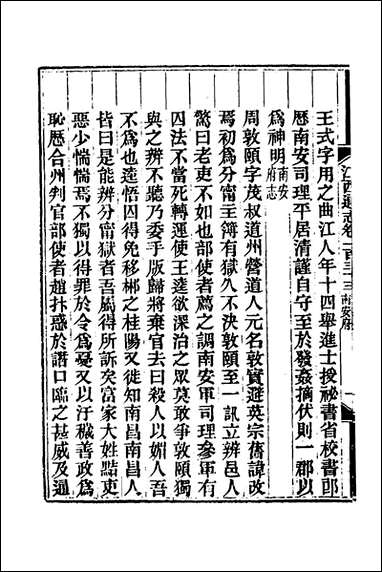 江西通志卷一百三十三 南安府 一
王式字用之曲江人年十四舉進士授祕書省校書郎
歷南安司理平居清謹自守至於發姦摘伏則一郡以
爲神明南安府志
周敦頤字茂叔道州營道人元名敦實避英宗舊諱改
焉初爲分甯主簿有獄久不決敦頤至一訊立辨邑人
驚曰老吏不如也部使者薦之調南安軍司理參軍有
囚法不當死轉運使王逵欲深治之眾莫敢爭敦頤獨
與之辨不聽乃委手版歸將棄官去曰殺人以媚人吾
不爲也逵悟囚得免移郴之桂陽又徙知南昌南昌人
皆曰是能辨分甯獄者吾屬得所訴矣富家大姓黠吏
惡少惴惴焉不獨以得罪於令爲憂又以汙穢善政爲
恥歷合州判官部使者趙抃惑於譖口臨之甚威及通